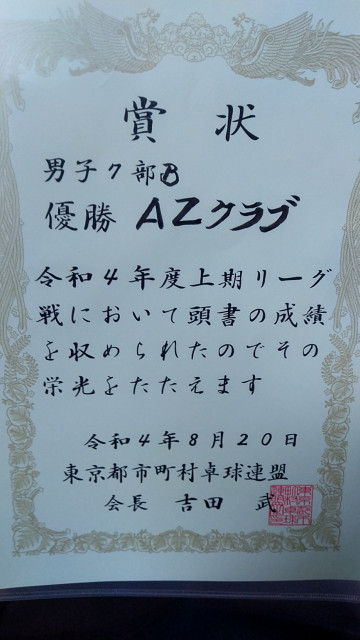 賞状
男子7部B
優勝 AZクラブ
令和4年度上期リーグ
戦において頭書の成績
を収められたのでその
栄光をたたえます
令和4年8月20日
東京都市町村卓球連盟
会長 吉田 武